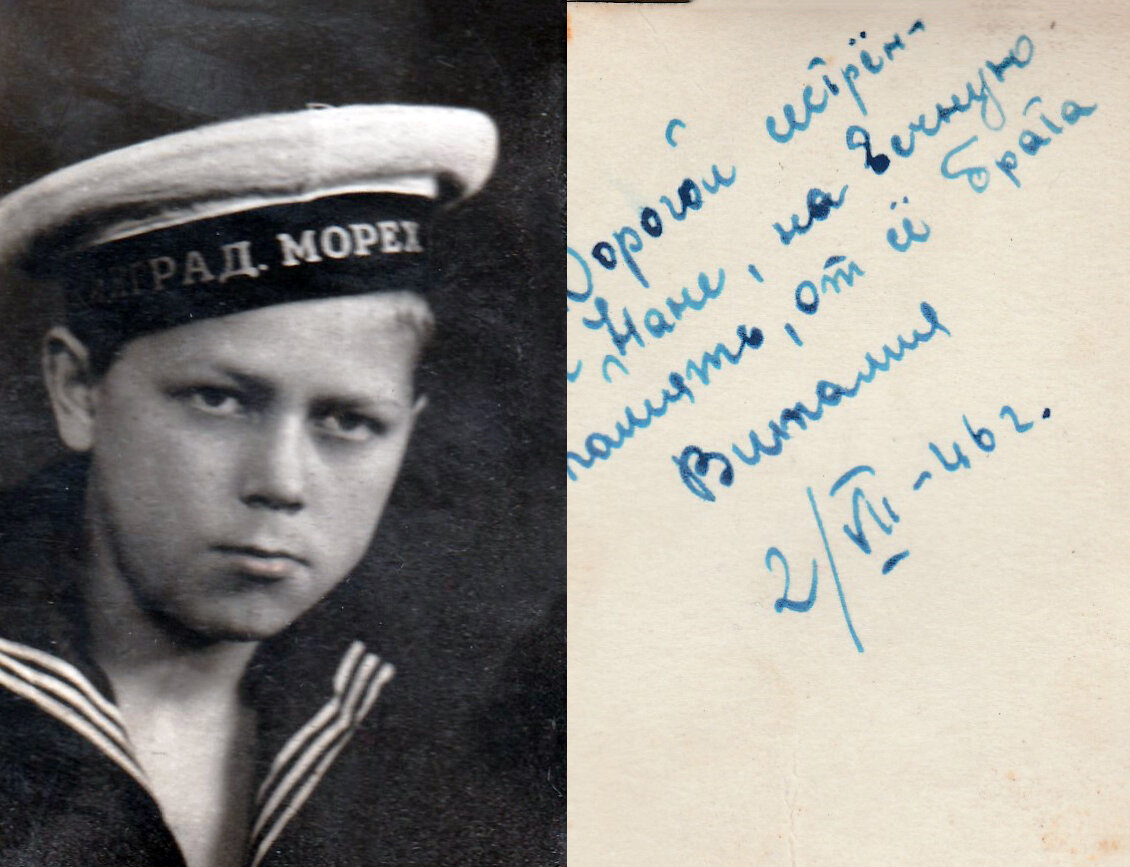 НГРАД. МОРЕХ
Дорогой сестрён-
Нане, на вечную
память, от её брата
Виталия
2/VIII-46 г.